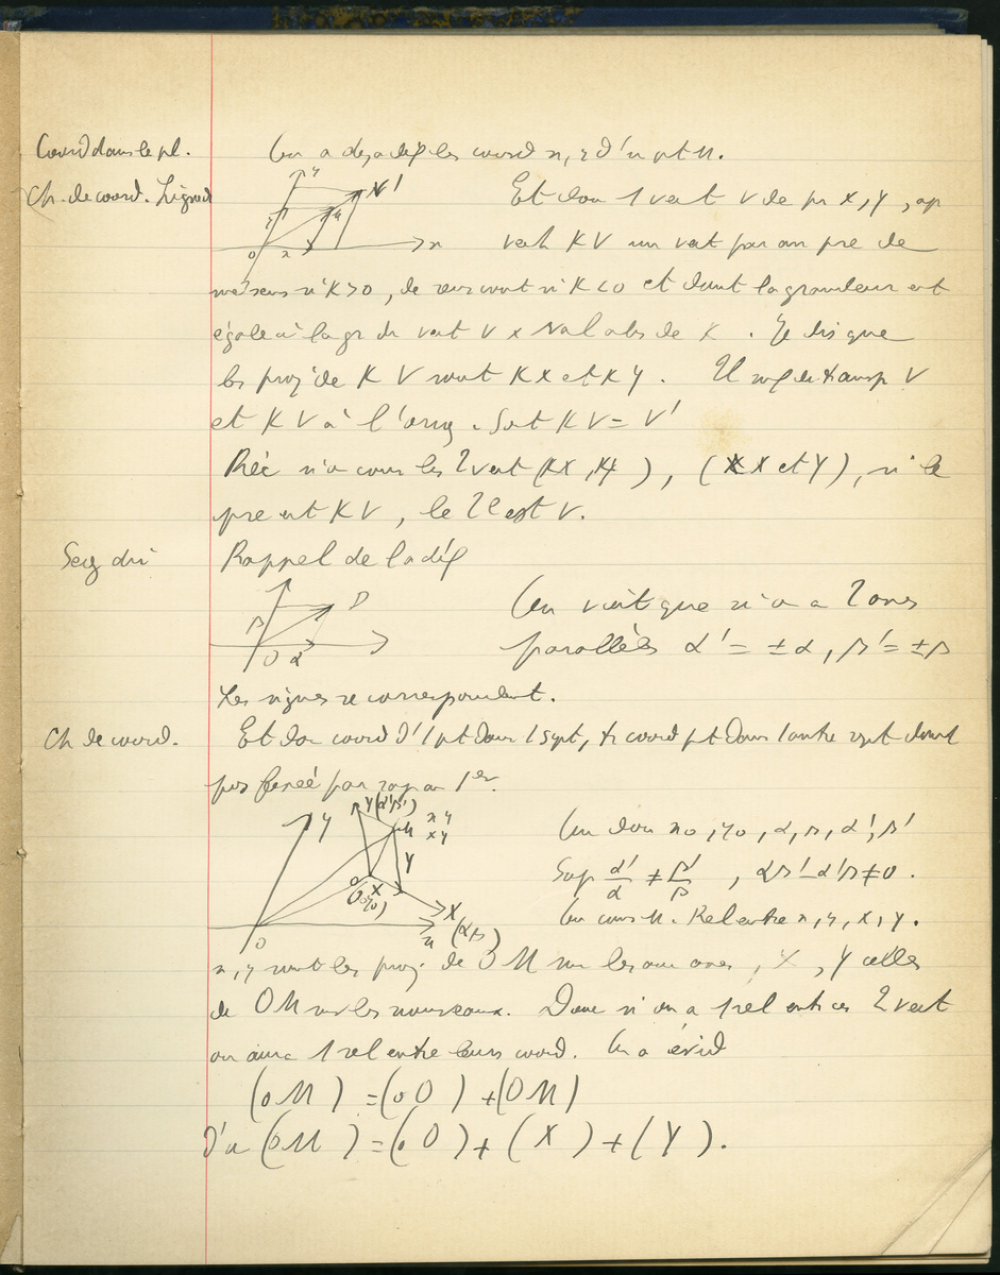 Coord dans le pl.
On a deja déf les coord x, y d'un pt M.
Ch. de coord. Lignes
Et don 1 vect V de pr X, Y, ap
vect KV un vect par au pre de
me sens si K>0, de sens cont si K<0 et dont la grandeur est
égale à la gr du vect V x val abs de K. Je dis que
les proj de KV sont KX et KY. Il suf de transp V
et KV à l'orig. Soit KV = V'
Réc si on cons les 2 vect (KX, KY), (X et Y), si le
pre est KV, le 2e est V.
Seg dir
Rappel de la déf
On voit que si on a 2 axes
parallèles α' = ±α, β' = ±β
Les signes se correspondent.
Ch de coord.
Et don coord d'1 pt dans 1 syst, tr coord pt dans 1 autre syst dont
pos fixée par rap au 1er.
On don x0, y0, α, β, α', β'
Sup α'/α ≠ β'/β, αβ' - α'β ≠ 0.
On cons M. Rel entre x, y, X, Y.
x, y sont les proj. de OM sur les anc axes, X, Y celles
de OM sur les nouveaux. Donc si on a 1 rel entre ces 2 vect
on aura 1 rel entre leurs coord. On a évid
(oM) = (oO) + (OM)
D'où (oM) = (oO) + (X) + (Y).